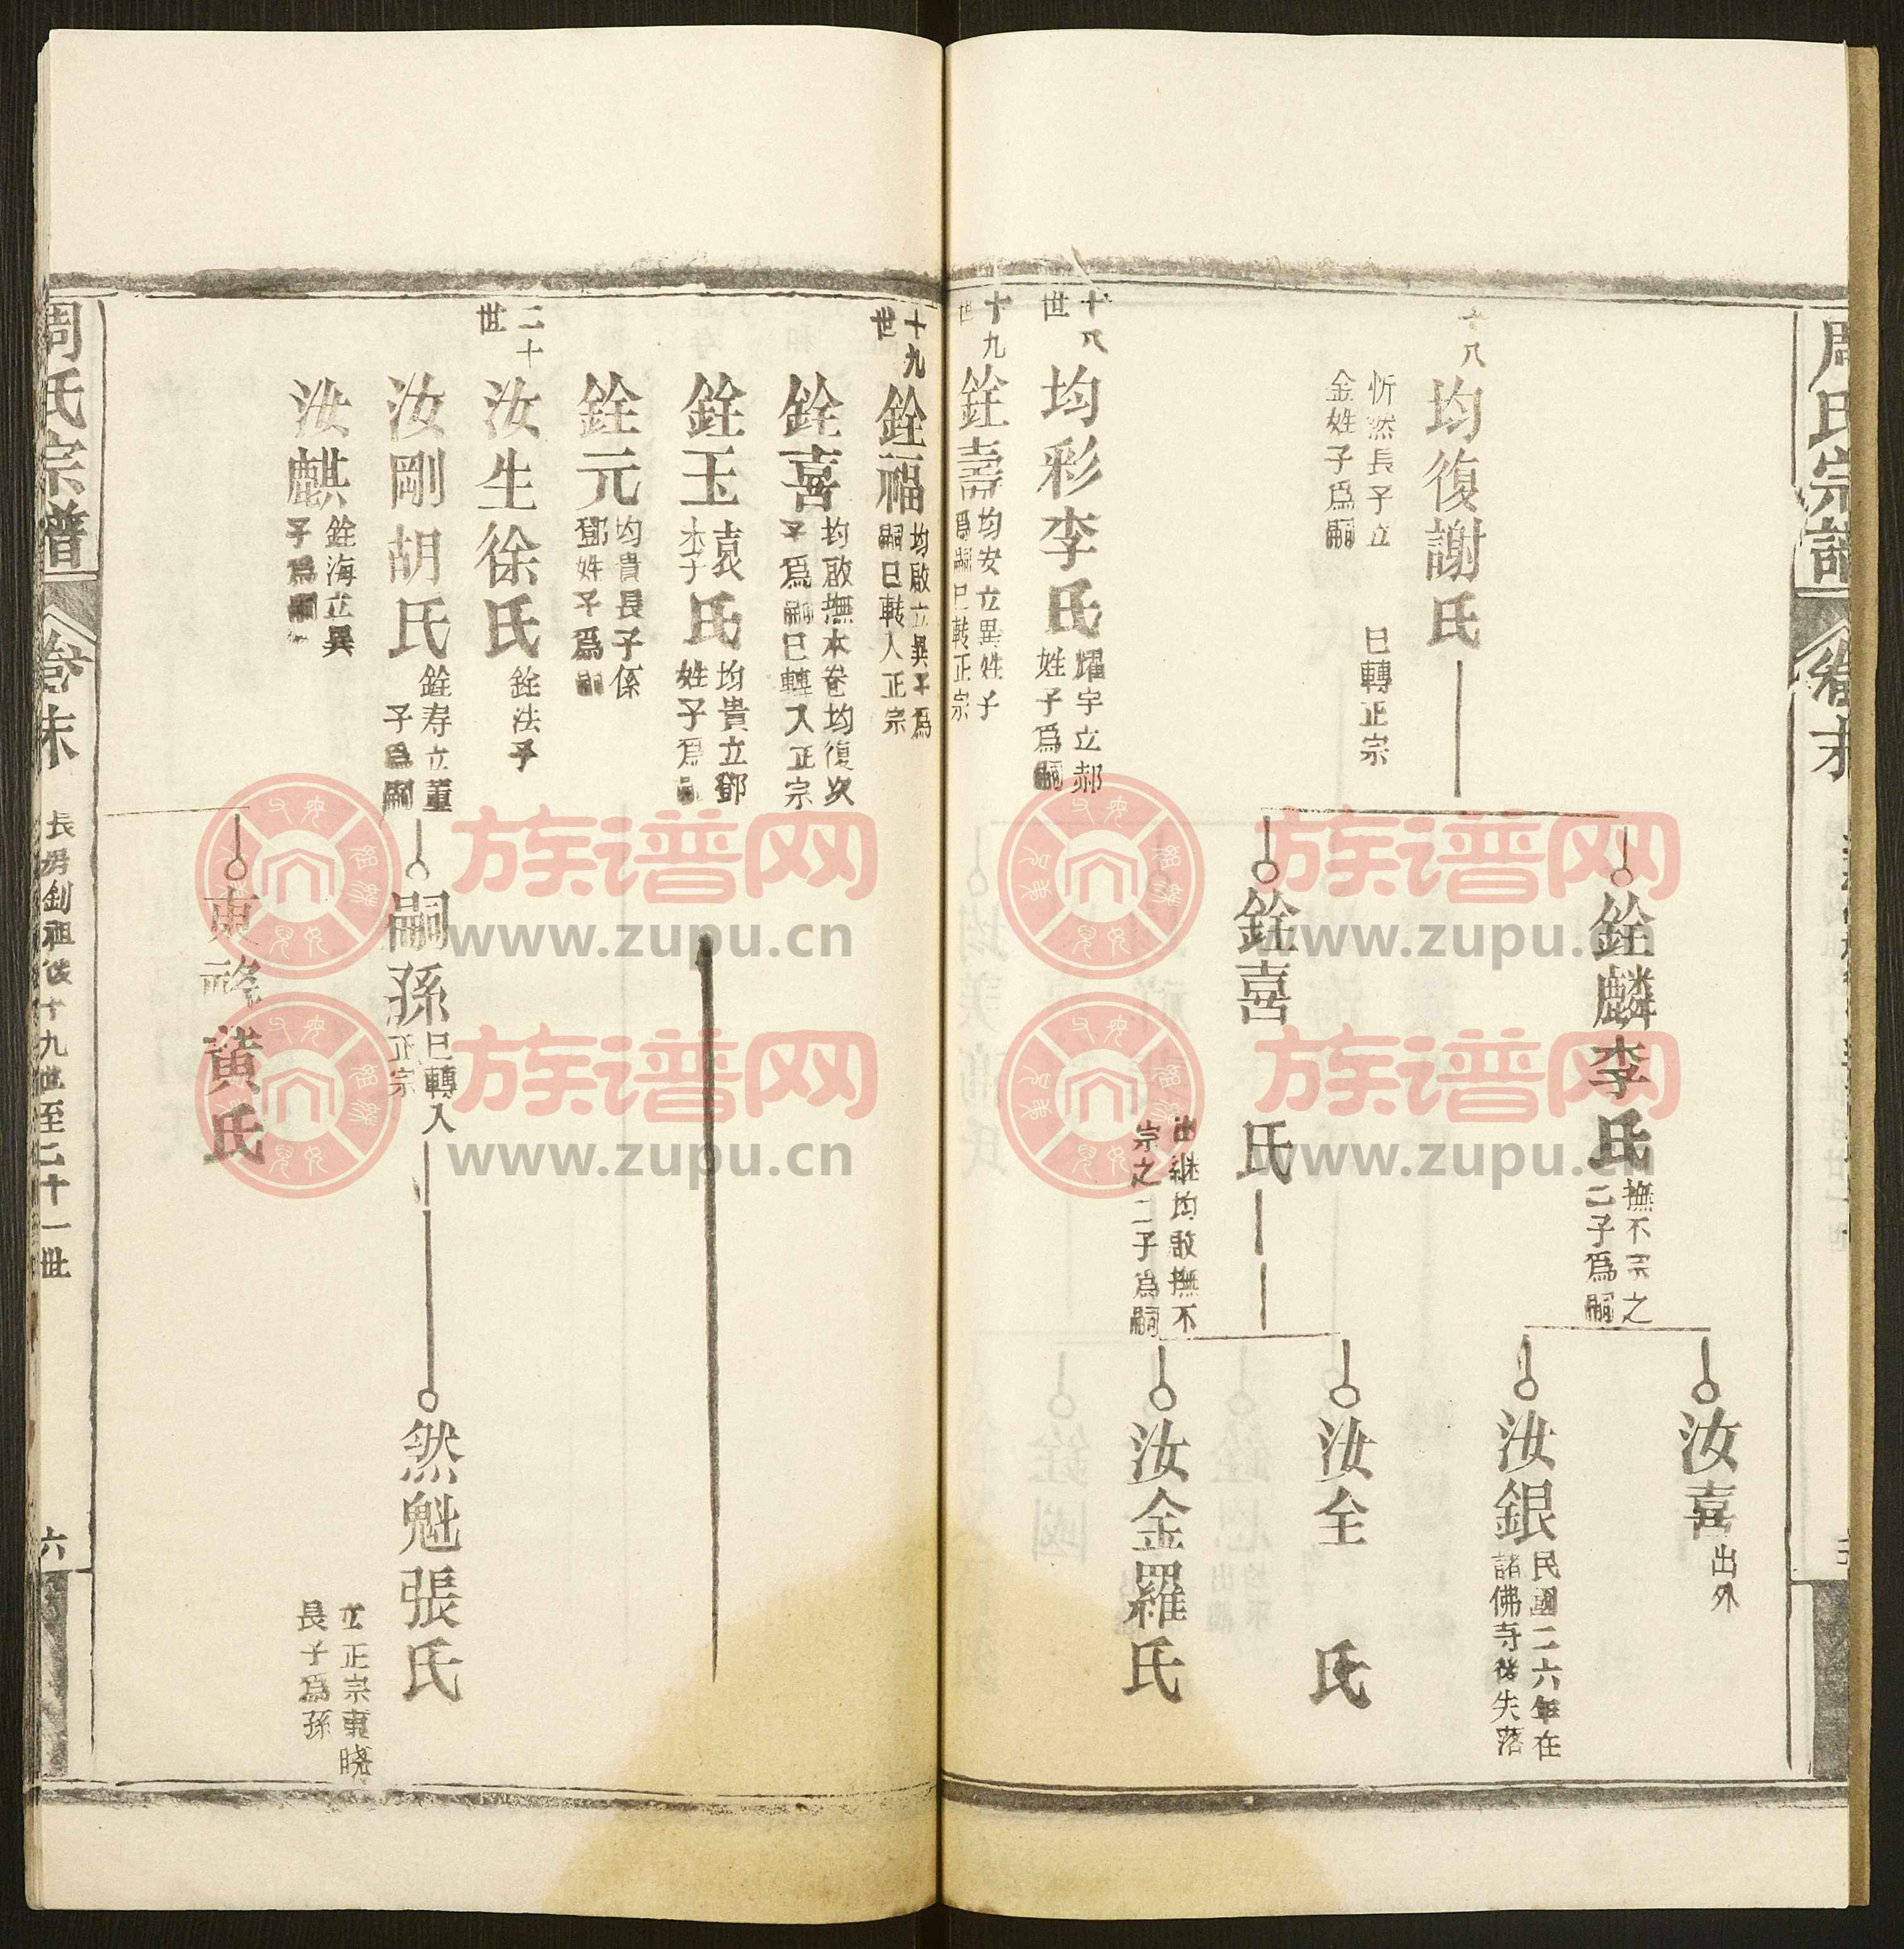 周氏宗譜
卷末
十八
均復謝氏
忻然長子立
金姓子爲嗣
已轉正宗
銓麟李氏
撫不宗之
二子爲嗣
汝喜
出外
汝銀
民國二六年在
諸佛寺後失落
銓喜 氏
出継均啟撫不
宗之二子爲嗣
汝全 氏
汝金羅氏
十八
世
均彩李氏
耀宇立郝
姓子爲嗣
十九
世
銓壽
均安立異姓子
爲嗣已转正宗
十九
世
銓福
均啟立異子爲
嗣已転入正宗
銓喜
均啟撫本卷均復次
子爲嗣已轉入正宗
銓玉袁氏
李
均貴立鄧
姓子爲
銓元
均貴長子係
鄧姓子爲嗣
二十
世
汝生徐氏
銓法子
汝剛胡氏
銓寿立董
子爲嗣
嗣孫
已轉入
正宗
然魁張氏
立正宗東曉
長子爲孫
汝麒
銓海立異
子爲嗣
東 黃氏
周氏宗譜
卷末
長房釗祖後十九世至二十一世
六
族谱网
www.zupu.cn
族谱网
www.zupu.cn
族谱网
www.zupu.cn
族谱网
www.zupu.cn